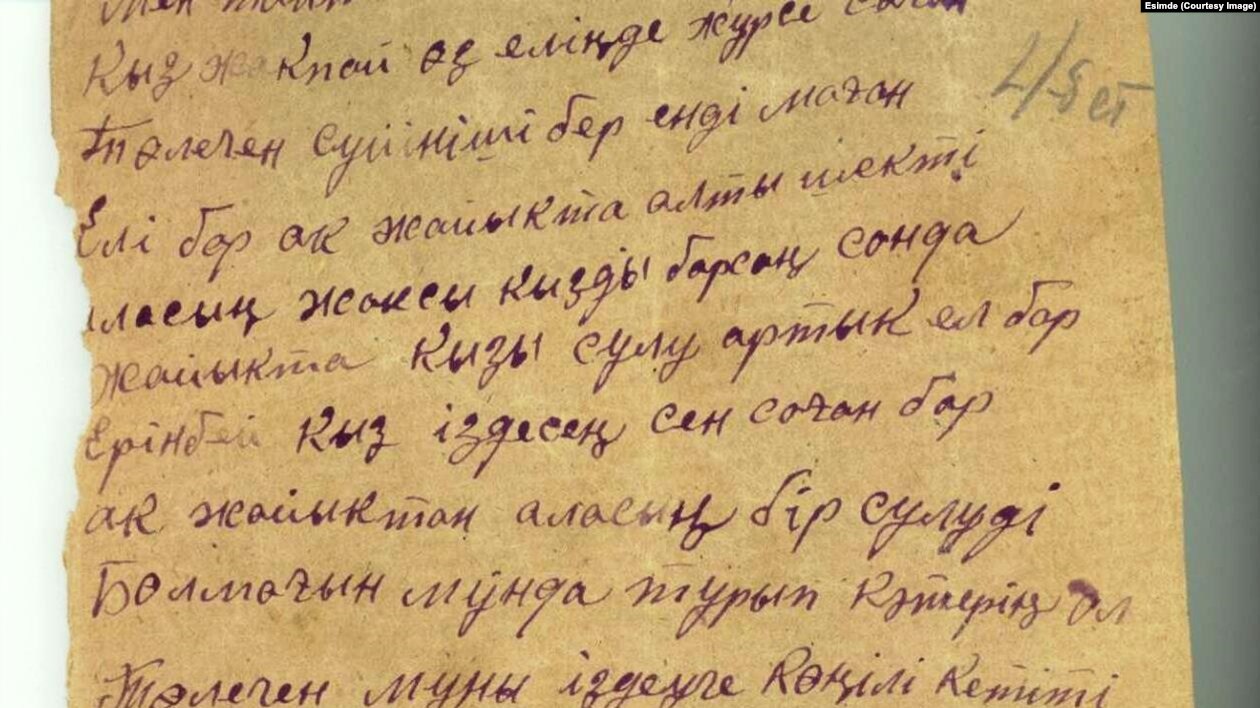 Esimde (Courtesy Image)
Мен
Кыз жакпай өз еліңде жүрсе саған
4/-8 ст
Төлечен сүйініші бер енді маған
Елі бар ак жайыкта алты шекті
аласың жаксы кызды барсаң сонда
жайыкта кызы сулу артык ел бар
Ерінбей кыз іздесең сен саған бар
ак жайыктан аласың бір сулуді
Болмағын мұнда турып көтерің ал
Төлечен муны іздеуге көңілі кетіпті